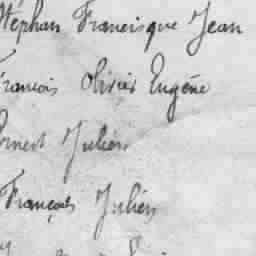 Stéphan Francisque Jean
François Olivier Eugène
Ernest Julien
François Julien